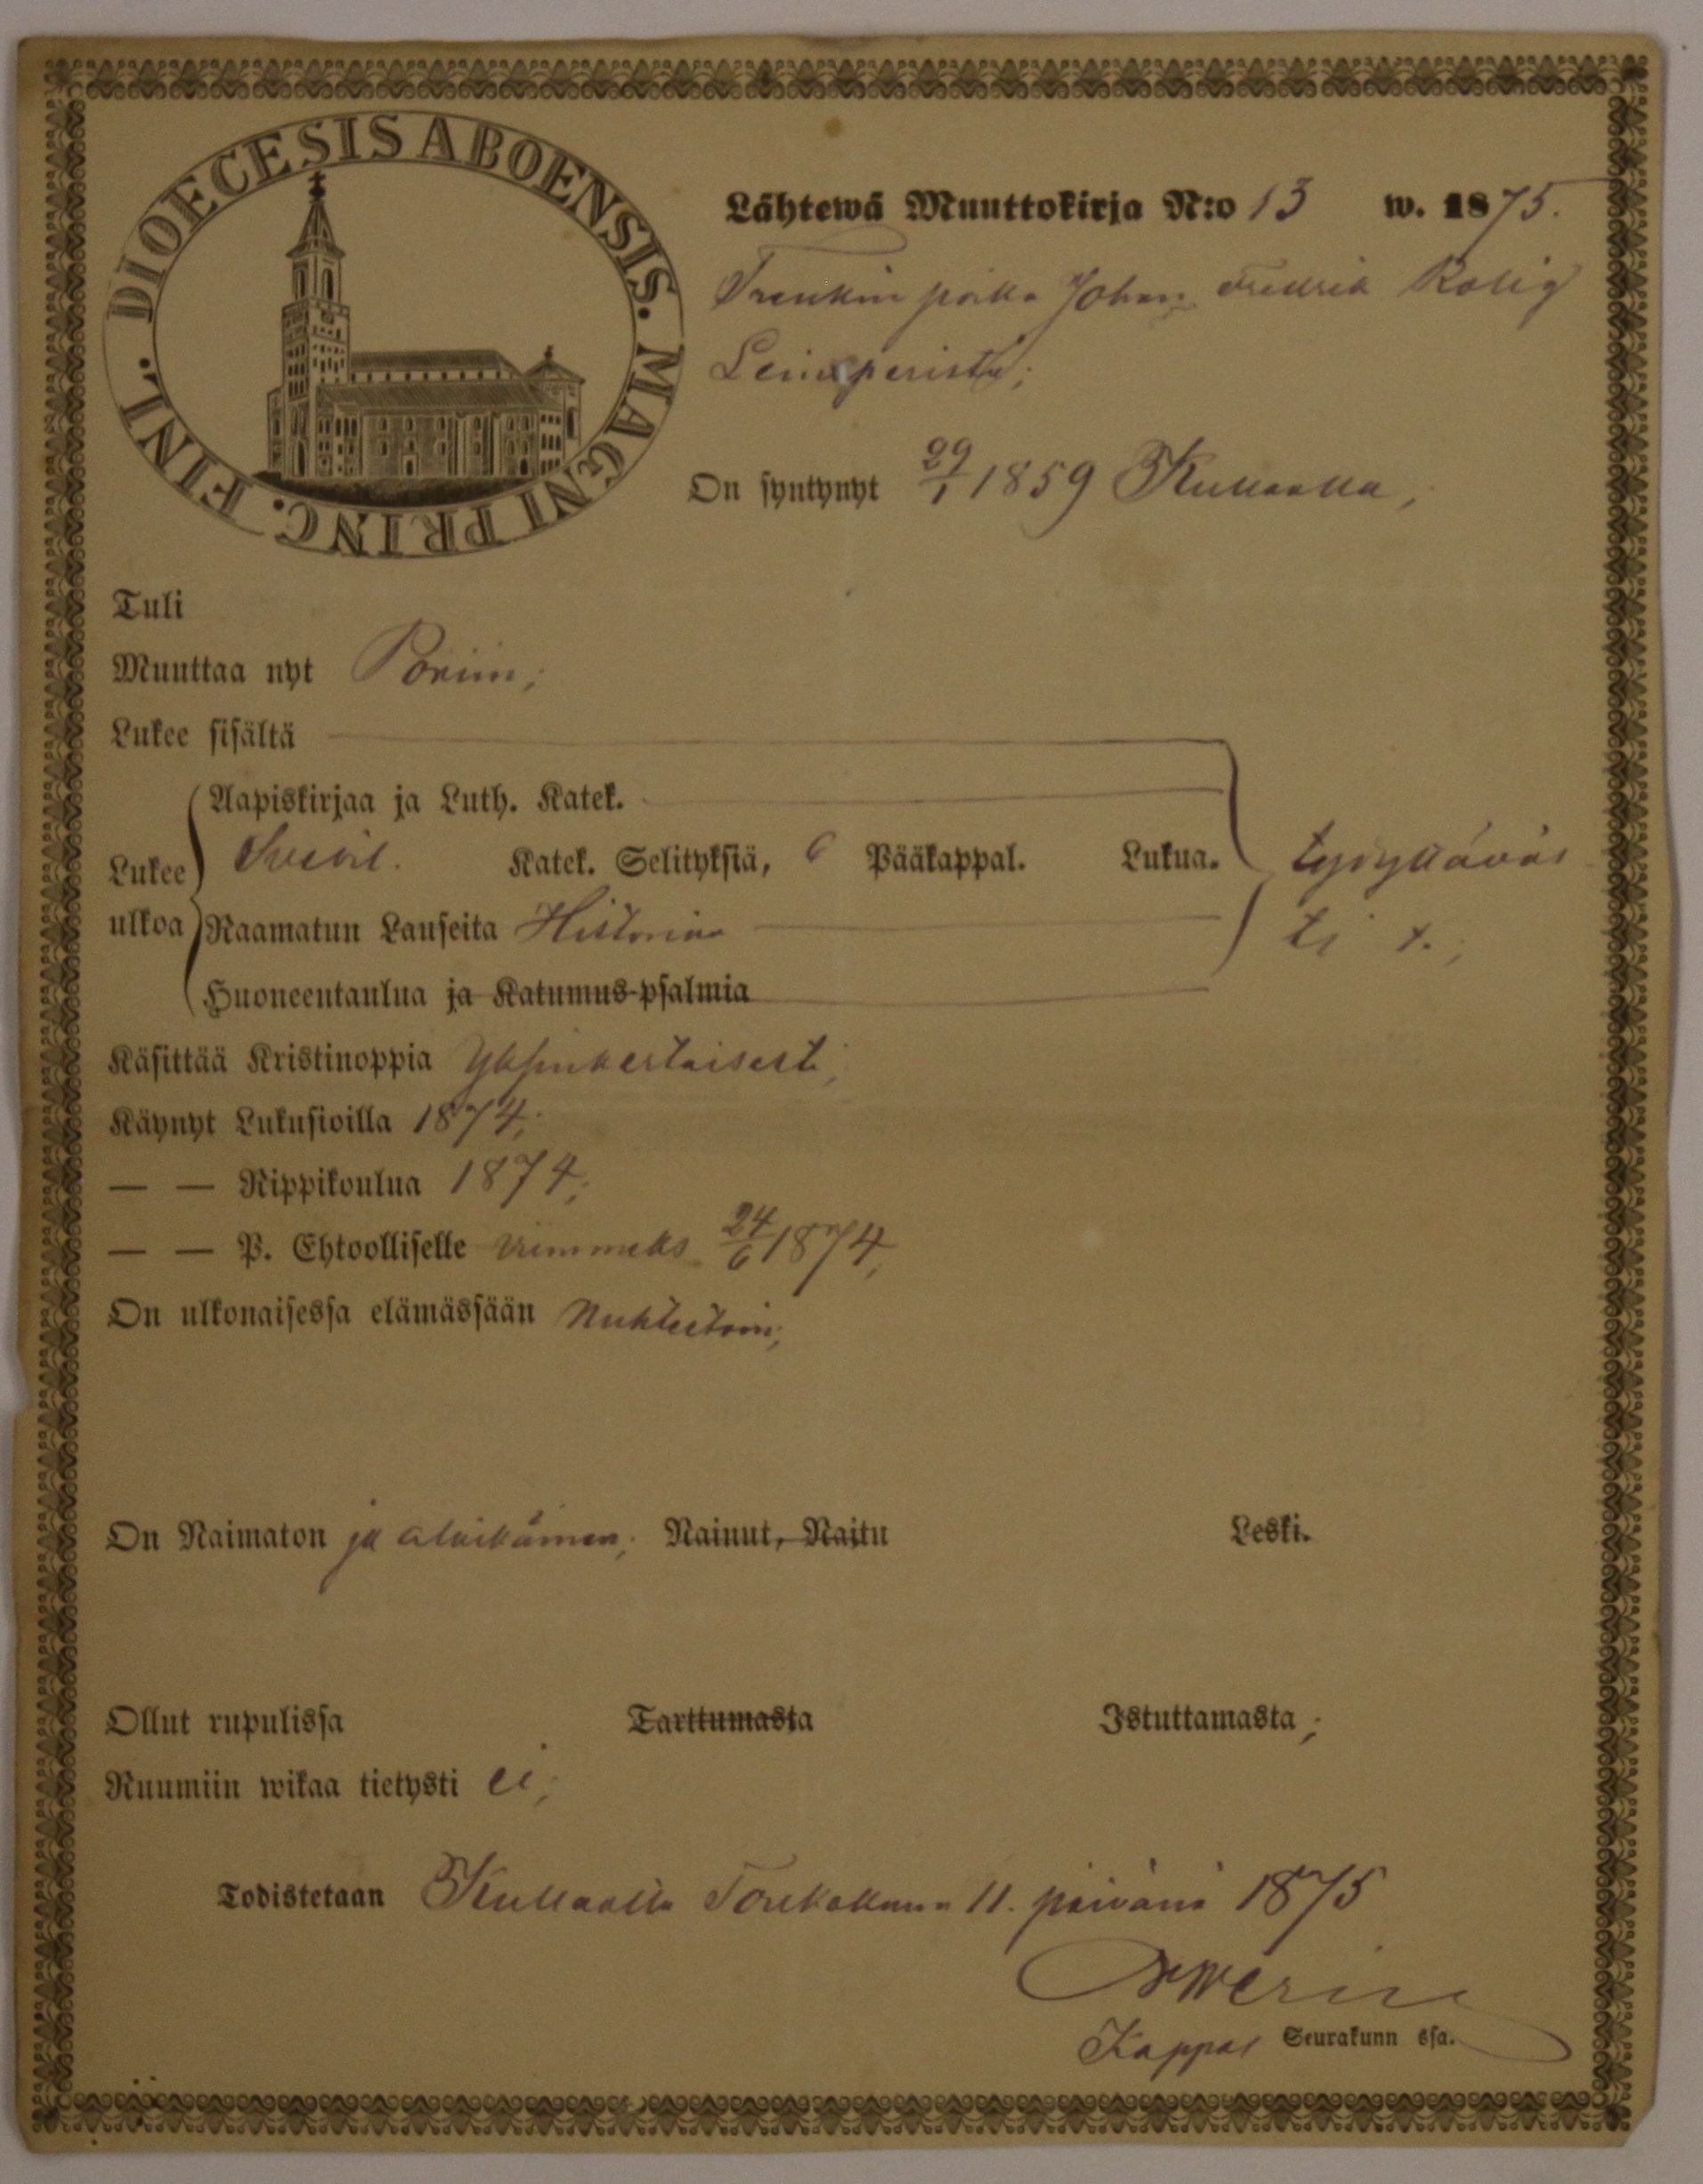 DIOECESIS ABOENSIS. MAGNI PRINC. FINL.
Lähtewä Muuttokirja N:o 13 w. 1875.
Trenkin poika Johan Fredrik Rolig
Leineperistä;
On syntynyt 29/1 1859 Kullaalla,
Tuli
Muuttaa nyt Poriin;
Lukee sisältä
Aapiskirjaa ja Luth. Katek.
Lukee ulkoa
Svebil. Katek. Selityksiä, 6 Pääkappal. Lukua. tyydyttäväs
Raamatun Lauseita Historiaa ti
Huoneentaulua ja Katumus-psalmia
Käsittää Kristinoppia Yksinkertaisesti;
Käynyt Lukusioilla 1874;
— — Rippikoulua 1874;
— — P. Ehtoolliselle viimmeks 24/6 1874;
On ulkonaisessa elämässään Nuhteetoin;
On Naimaton ja alaikäinen; Nainut, Naitu Leski.
Ollut rupulissa Tarttumasta Istuttamasta;
Ruumiin wikaa tietysti ei;
Todistetaan Kullaalla Toukokuun 11. päivänä 1875
Kappal Seurakunn ssa.